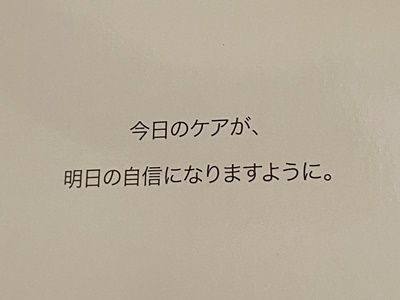 今日のケアが、
明日の自信になりますように。